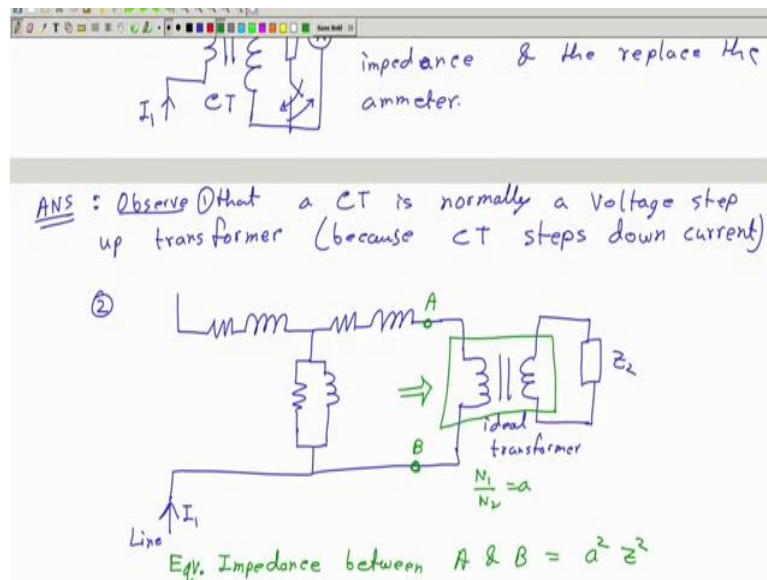 Same Bold
impedance & the replace the
ammeter.
I₁ CT
ANS : Observe ① that a CT is normally a Voltage step
up transformer (because CT steps down current)
②
A
Z₂
ideal
transformer
B
N₁/N₂ = a
I₁
Line
Eqv. Impedance between A & B = a² z²